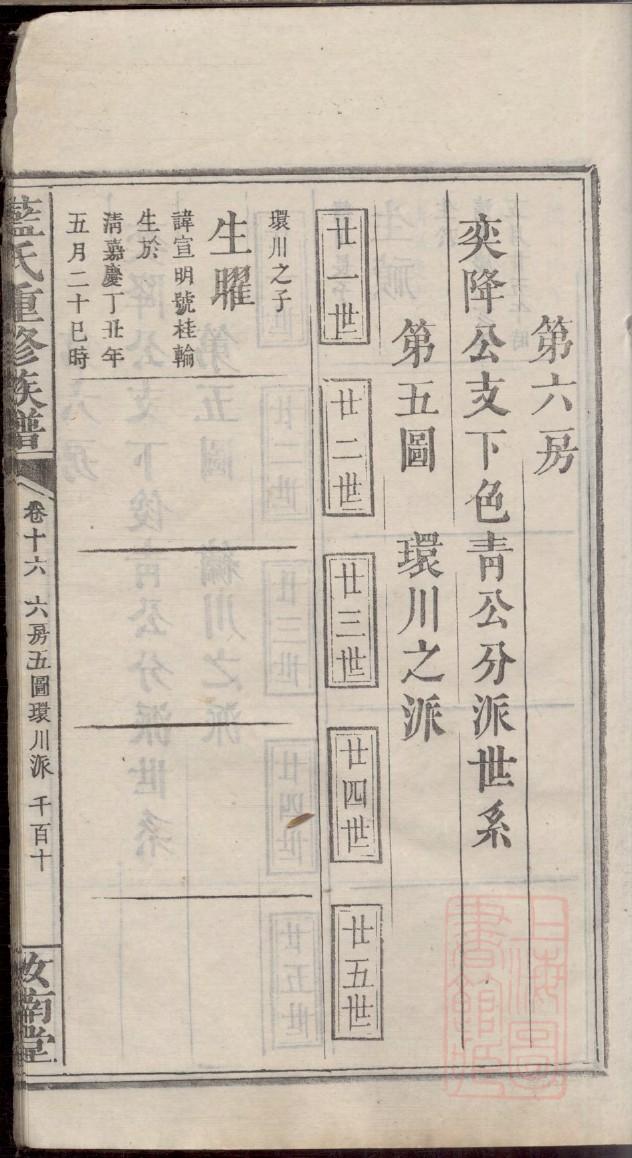 第六房
奕降公支下色靑公分派世系
第五圖　環川之派
廿一世
廿二世
廿三世
廿四世
廿五世
環川之子
生躍
諱宣明號桂輪
生於
淸嘉慶丁丑年
五月二十巳時
藍氏重修族譜
卷十六　六房五圖環川派　千百十
汝南堂
上海圖書館藏